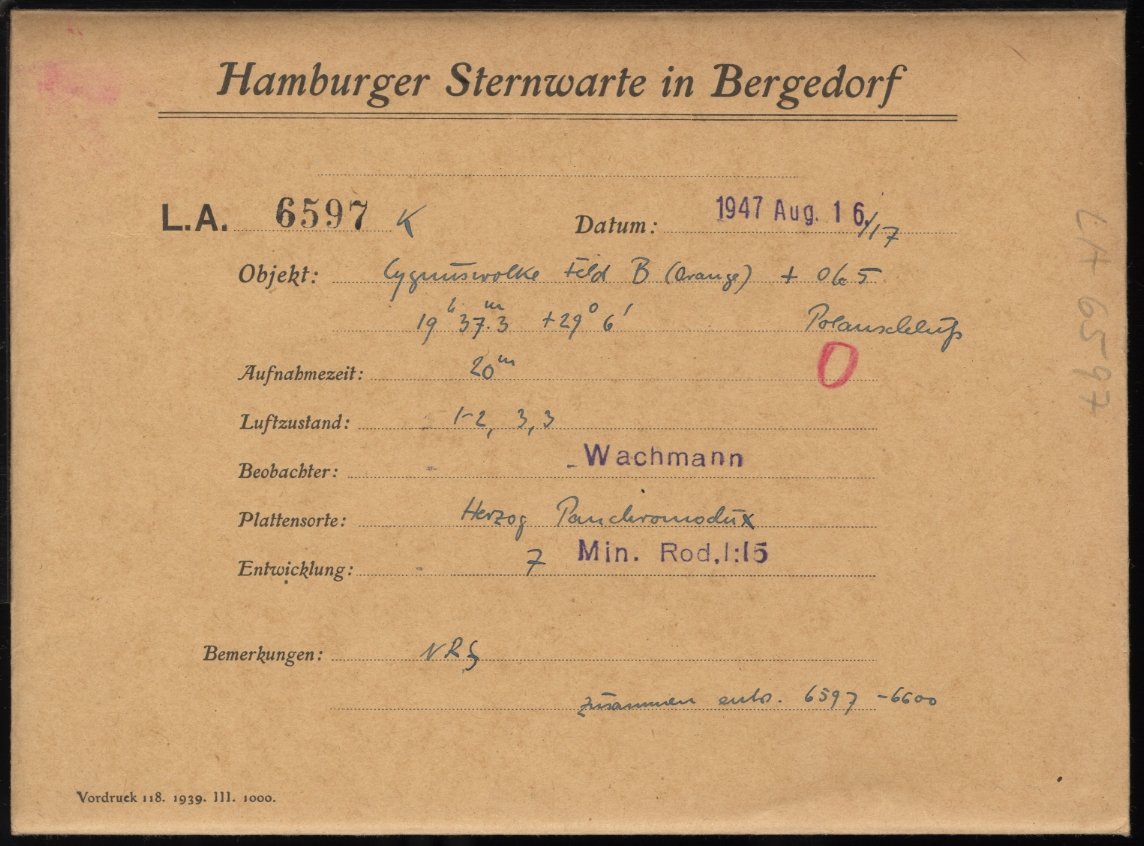 Hamburger Sternwarte in Bergedorf
L.A. 6597 K Datum: 1947 Aug. 16./17
Objekt: Cygnuswolke Feld B (Orange) +
19h 37m.3 +29° 6' Polanschluß
Aufnahmezeit: 20m
Luftzustand: 1-2, 3, 3
Beobachter: Wachmann
Plattensorte: Herzog Panchromodux
Entwicklung: 7 Min. Rod. 1:15
Bemerkungen:
zusammen entw. 6597 - 6600
Vordruck 118. 1939. III. 1000.
LA 6597